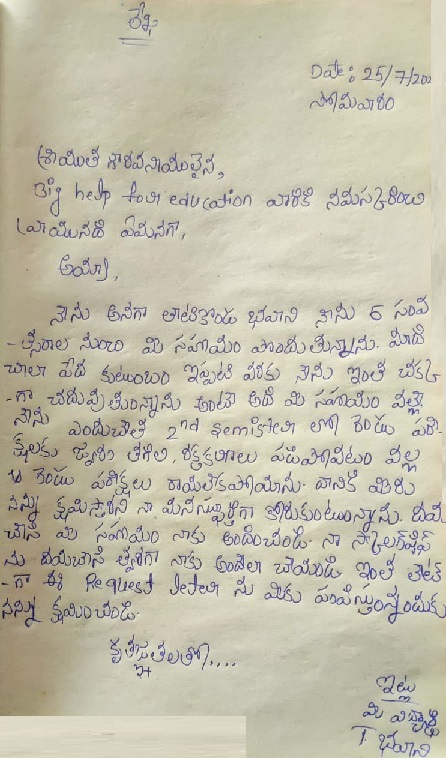 లేఖ
Date: 25/7/202
సోమవారం
శ్రీయుత గౌరవనీయులైన,
Big help for education వారికి నమస్కరించి
వ్రాయునది ఏమనగా,
అయ్యా,
నేను అనగా తాటికొండ భవాని నేను 6 సంవ
-త్సరాల నుంచి మీ సహాయం పొందుతున్నాను. మాది
చాలా పేద కుటుంబం ఇప్పటి వరకు నేను ఇంత చక్క
-గా చదువుతున్నాను అంటే అది మీ సహాయం వల్లే
నేను ఎందుచేత 2nd semister లో రెండు పరి-
క్షలకు జ్వరం తగిలి రక్తకణాలు పడిపోవటం వల్ల
రెండు పరీక్షలు రాయలేకపోయాను. దానికి మీరు
నన్ను క్షమిస్తారని నా మనస్ఫూర్తిగా కోరుకుంటున్నాను. దయ
చేసి మీ సహాయం నాకు అందించండి. నా స్కాలర్‌షిప్
ను దయచేసి త్వరగా నాకు అందేలా చేయండి ఇంత లేట్
-గా ఈ Request letter ను మీకు పంపిస్తున్నందుకు
నన్ను క్షమించండి.
కృతజ్ఞతలతో....
ఇట్లు
మీ విద్యార్థి
T భవాని